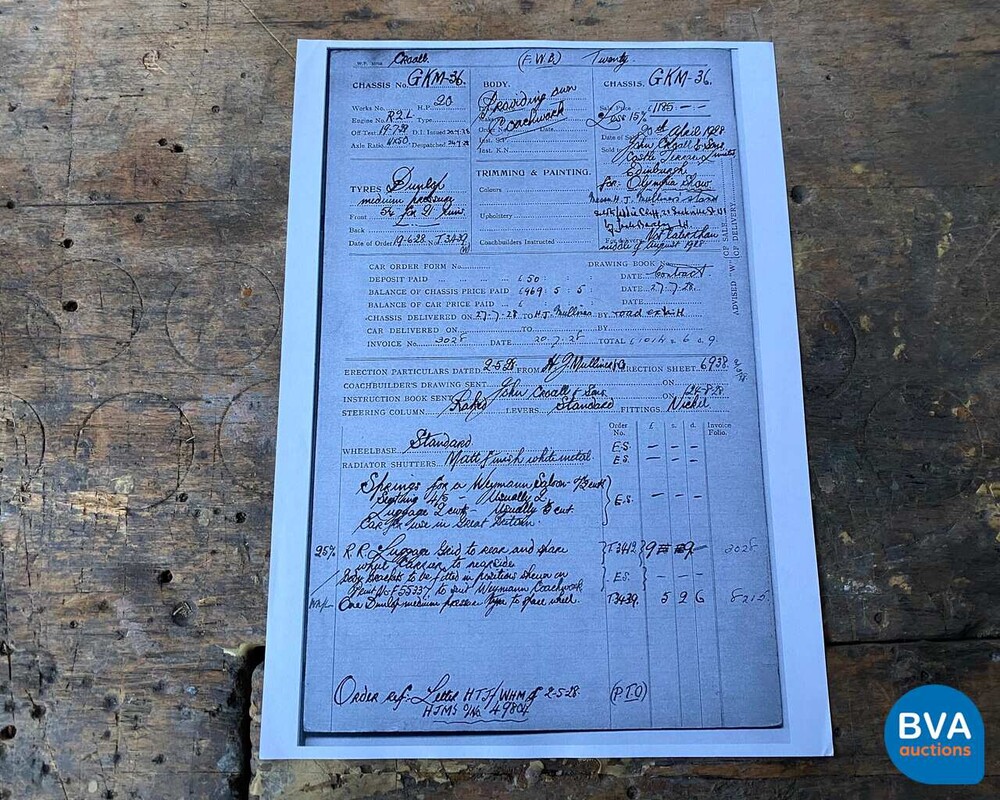 Croall. (F.W.D.) Twenty.
CHASSIS No. GKM-36. BODY. CHASSIS. GKM-36.
Works No. H.P. 20 Providing own Sale Price £1185 - -
Engine No. R2L Type Coachwork Less 15%
Off Test 19-7-28 D.I. Issued Order No. Date Date of Sale 20th April 1928
Axle Ratio Despatched Inst. S.P. Sold to John Croall & Sons
Inst. K.N. Castle Terrace
Edinburgh
TYRES Dunlop TRIMMING & PAINTING. for: Olympia Show
medium pressure Colours Messrs H. J. Mulliners stand
Front for 21 rims Upholstery
Back
Date of Order 19-6-28 No. T3439 Coachbuilders Instructed Not later than
middle of August 1928
OF SALE OF DELIVERY
ADVISED "W"
CAR ORDER FORM No. DRAWING BOOK No.
DEPOSIT PAID £ 50 : : DATE Contract
BALANCE OF CHASSIS PRICE PAID £969 : 5 : 5 : DATE 27-7-28.
BALANCE OF CAR PRICE PAID £ : : DATE
CHASSIS DELIVERED ON 27-7-28 TO H.J. Mulliner BY road
CAR DELIVERED ON TO BY
INVOICE No. 2028 DATE 20.7.28 TOTAL
ERECTION PARTICULARS DATED 2-5-28 FROM H.J. Mulliner ERECTION SHEET 6938
COACHBUILDER'S DRAWING SENT ON
INSTRUCTION BOOK SENT John Croall & Sons ON
STEERING COLUMN Raked LEVERS Standard FITTINGS Nickel
Order No. £ s. d. Invoice Folio.
WHEELBASE Standard E.S. - - -
RADIATOR SHUTTERS Matt finish white metal. E.S. - - -
Springs for a Weymann Saloon
Seating 4/5 - Usually 2 E.S. - - -
Luggage 2 cwt - Usually
Car for use in Great Britain.
95% R.R. Luggage Grid to rear and spare T3412 9 9 - 2028
wheel carrier to nearside
body brackets to be fitted in positions shewn on E.S. - - -
Print No. F55337 to suit Weymann Coachwork
One Dunlop medium pressure tyre to spare wheel. T3439. 5 2 6 8215.
Order ref: Letter HTJ/WHM of 2-5-28 (P.T.O)
HJMS O/No. 4980
BVA
auctions